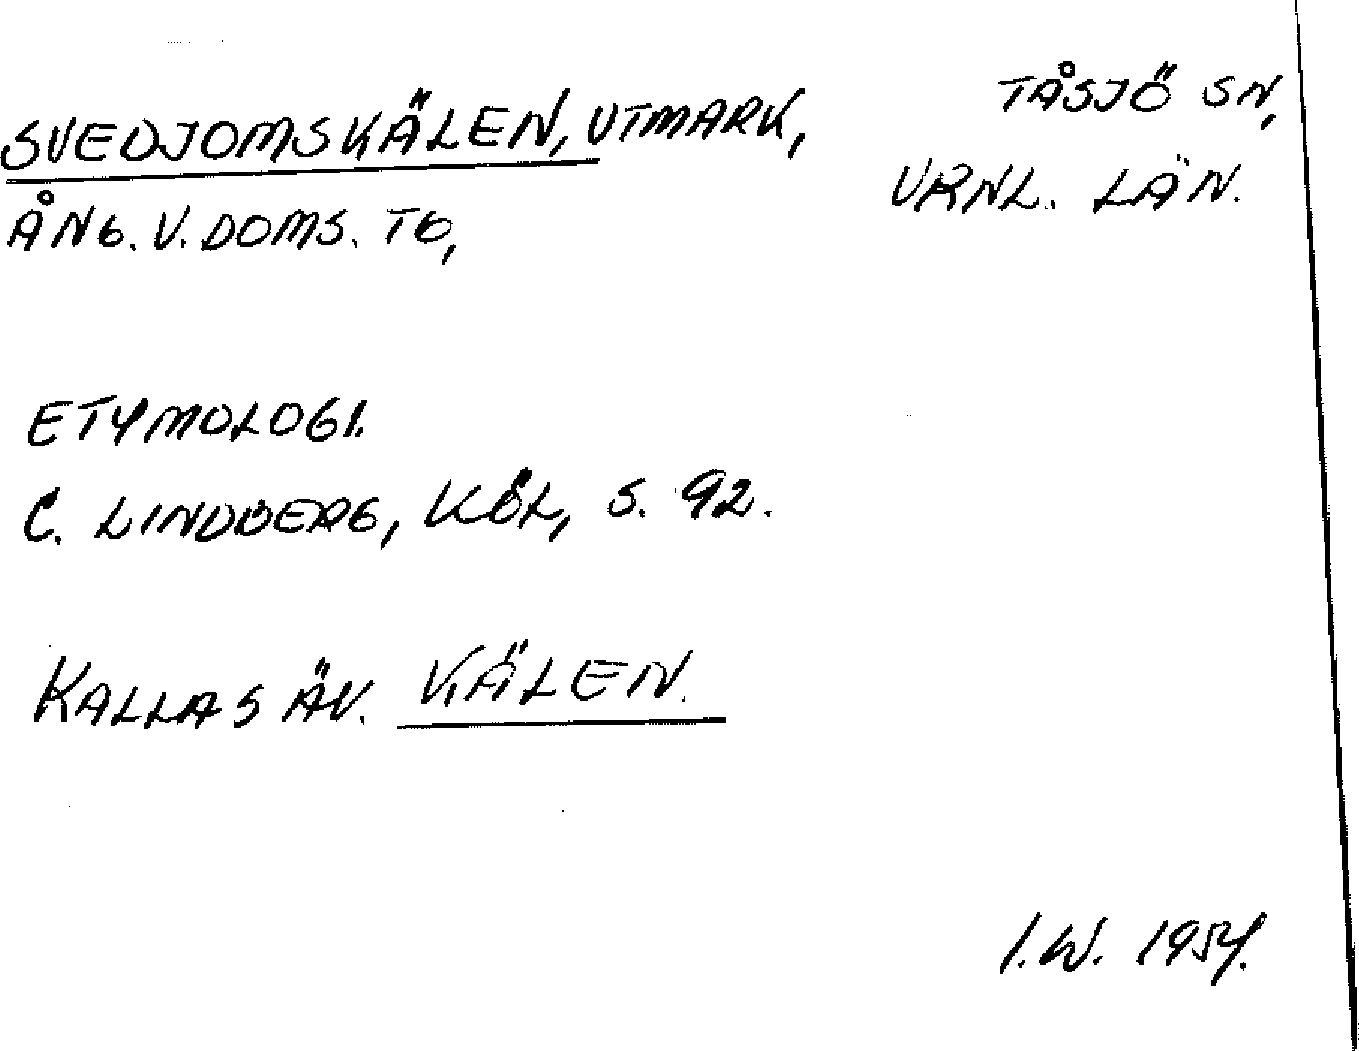 SVEDJOMSKÄLEN, UTMARK,
ÅNG. V. DOMS. TG,
TÅSJÖ SN,
VRNL. LÄN.
ETYMOLOGI.
C. LINDBERG, KÖL, S. 92.
KALLAS ÄV. KÄLEN.
I.W. 1954.